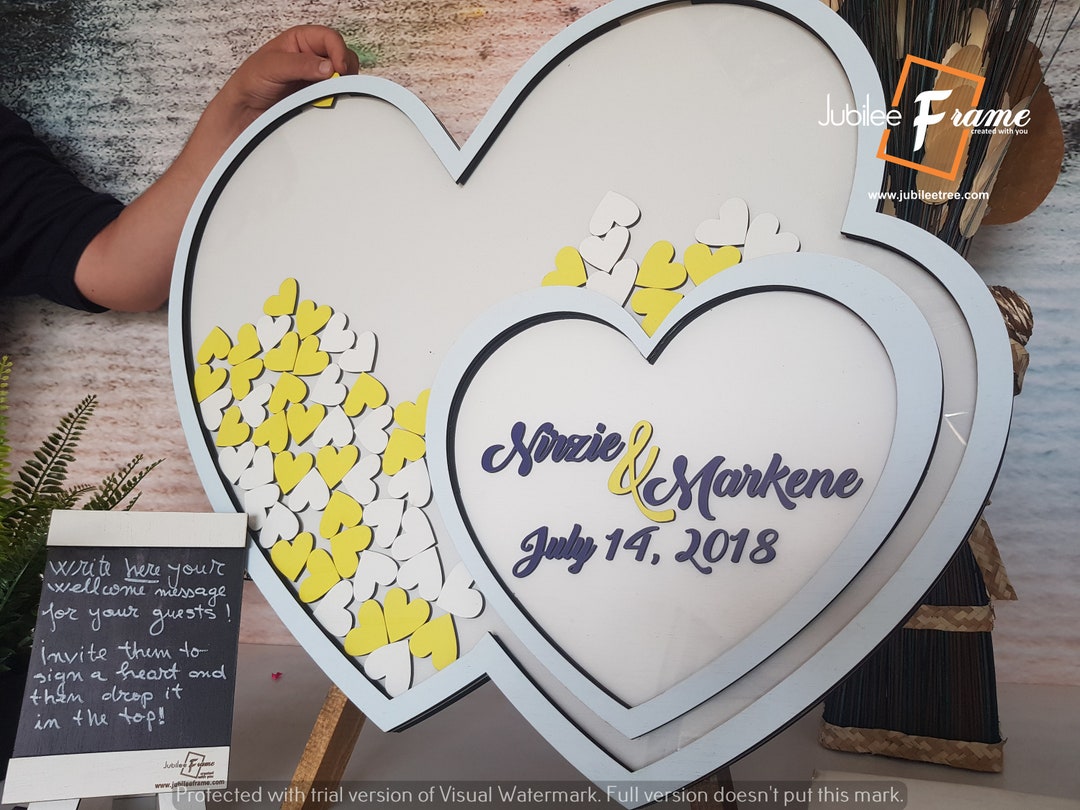 Jubilee Frame
created with you
www.jubileetree.com
Nirzie
&
Markene
July 14, 2018
write here your
wellcome message
for your guests!
Invite them to
sign a heart and
then drop it
in the top!
Jubilee Frame
created with you
www.jubileeframe.com
Protected with trial version of Visual Watermark. Full version doesn't put this mark.